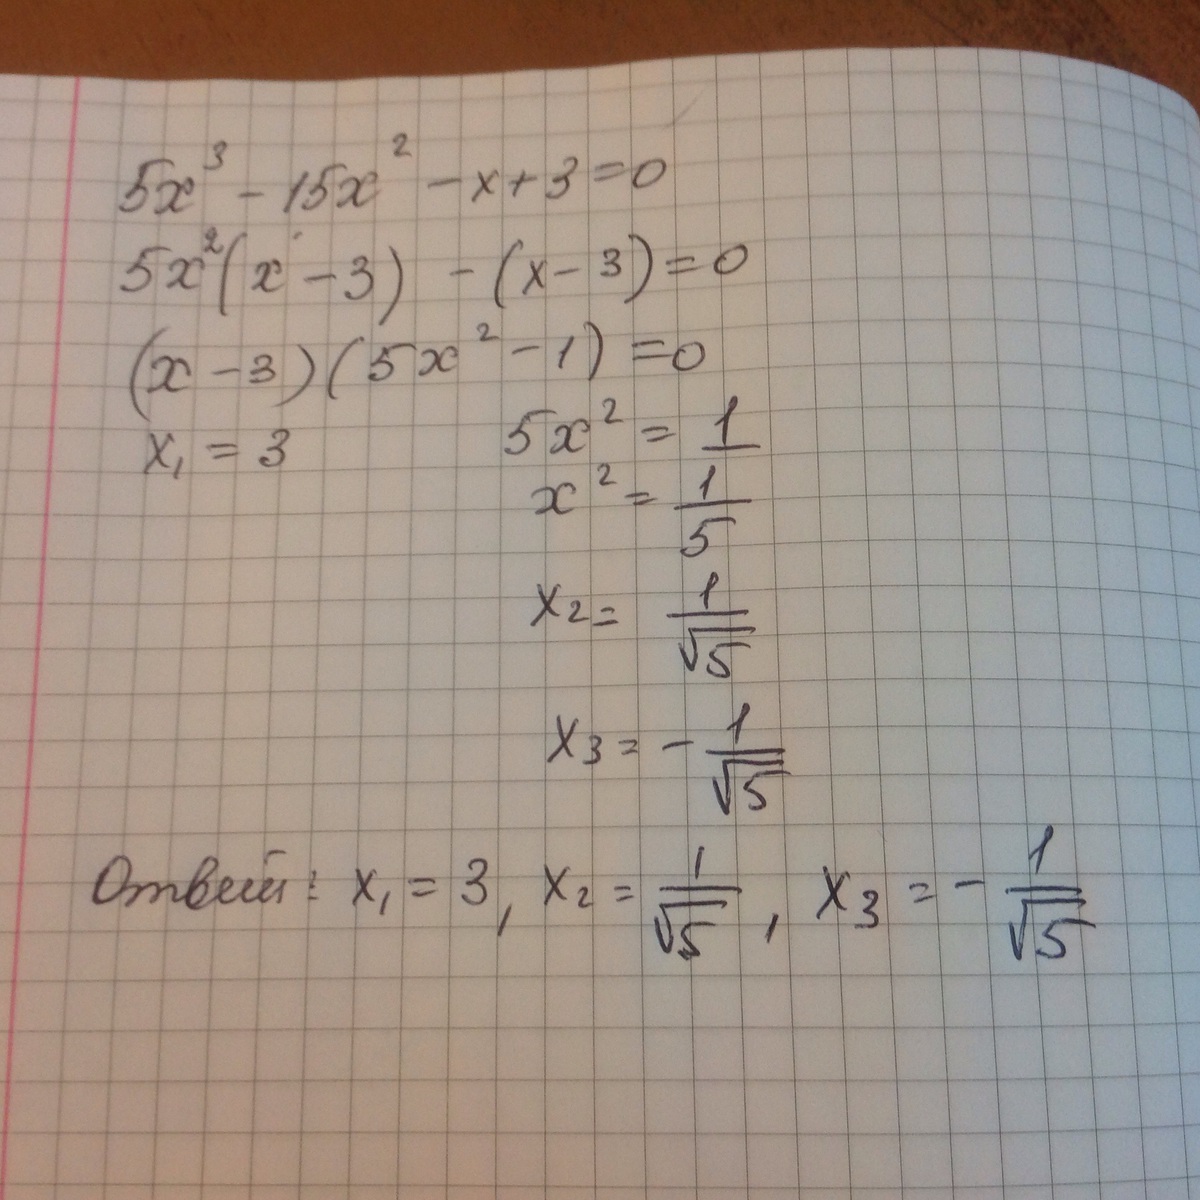 5x³ - 15x² - x + 3 = 0
5x²(x - 3) - (x - 3) = 0
(x - 3)(5x² - 1) = 0
x₁ = 3 5x² = 1
x² = 1/5
x₂ = 1/√5
x₃ = - 1/√5
Ответ: x₁ = 3, x₂ = 1/√5, x₃ = - 1/√5